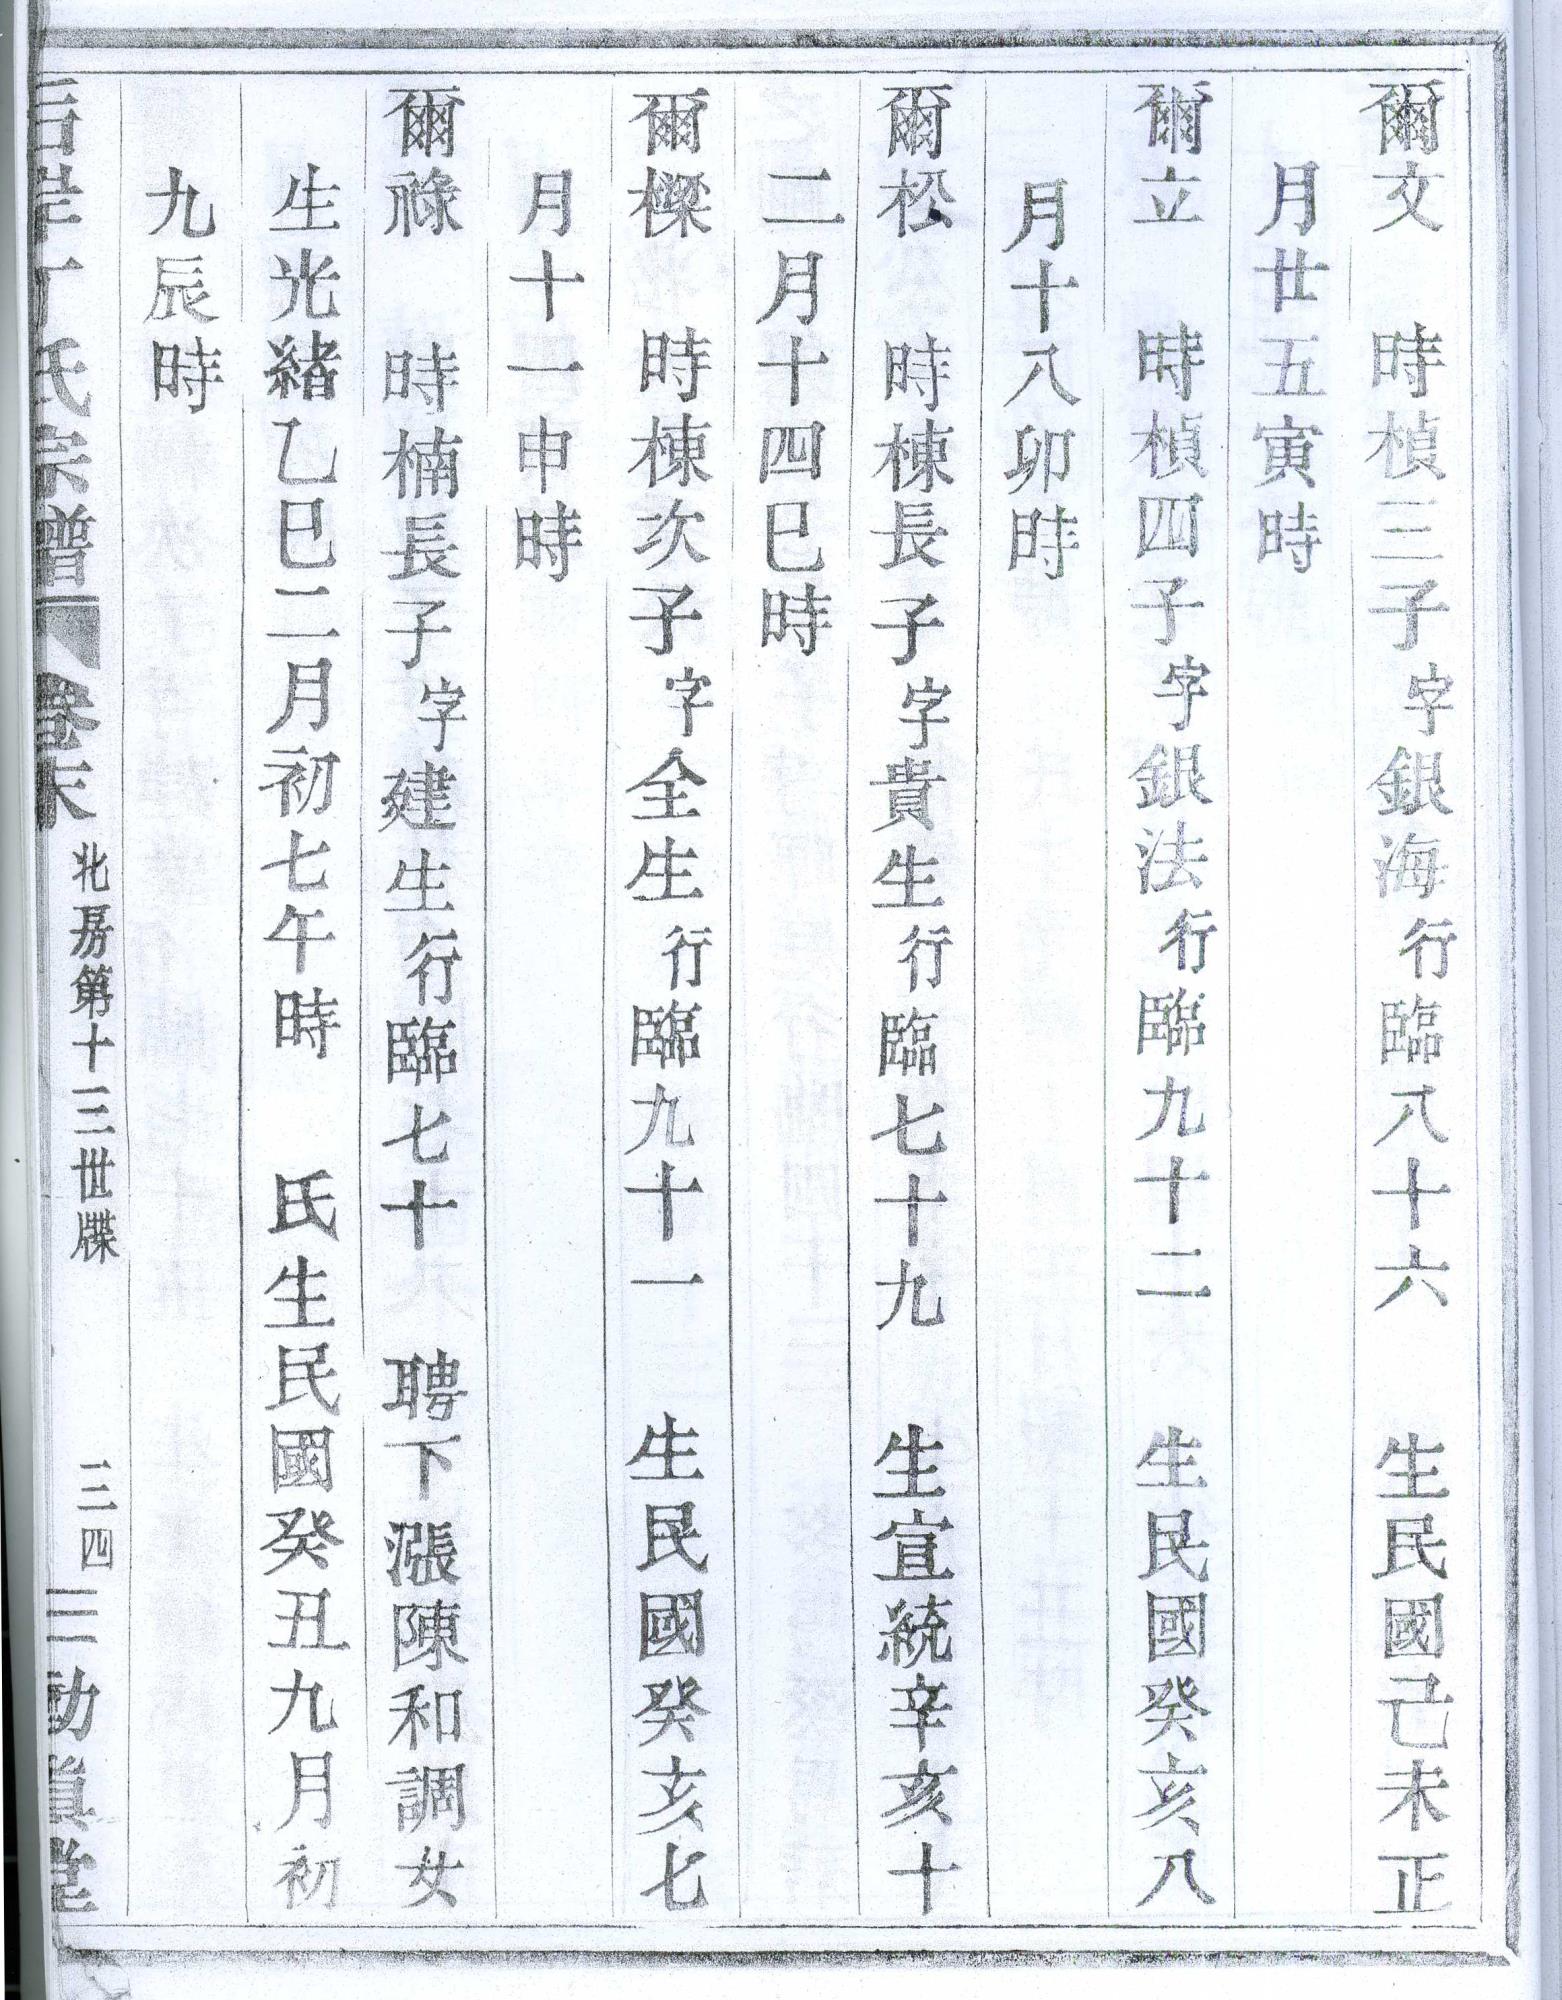 爾文　時楨三子字銀海行臨八十六　生民國己未正
月廿五寅時
爾立　時楨四子字銀法行臨九十二　生民國癸亥八
月十八卯時
爾松　時棟長子字貴生行臨七十九　生宣統辛亥十
二月十四巳時
爾樑　時棟次子字全生行臨九十一　生民國癸亥七
月十一申時
爾祿　時楠長子字建生行臨七十　聘下漲陳和調女
生光緒乙巳二月初七午時　氏生民國癸丑九月初
九辰時
丁氏宗譜　卷末　北房第十三世牒　三四　三勛眞堂